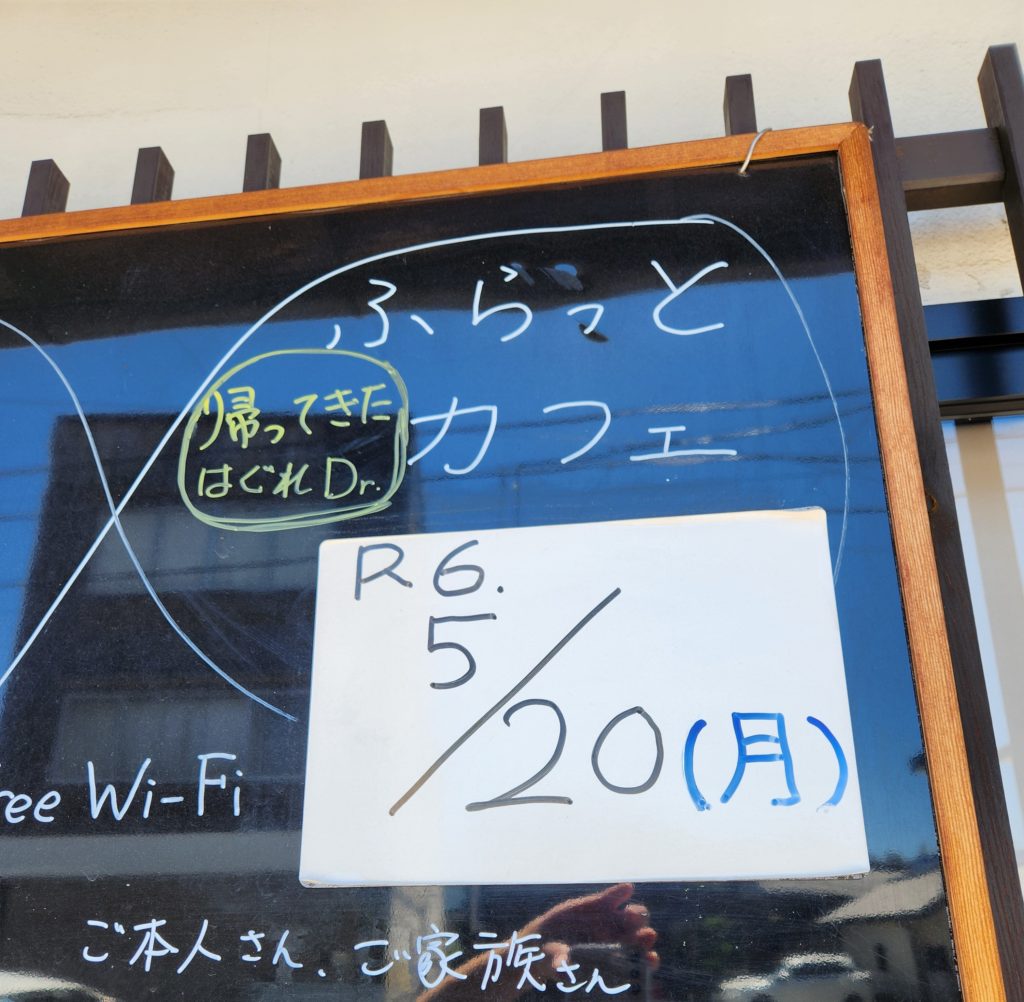 ふらっと
カフェ
帰ってきた
はぐれDr.
R6.
5/20(月)
ree Wi-Fi
ご本人さん、ご家族さん